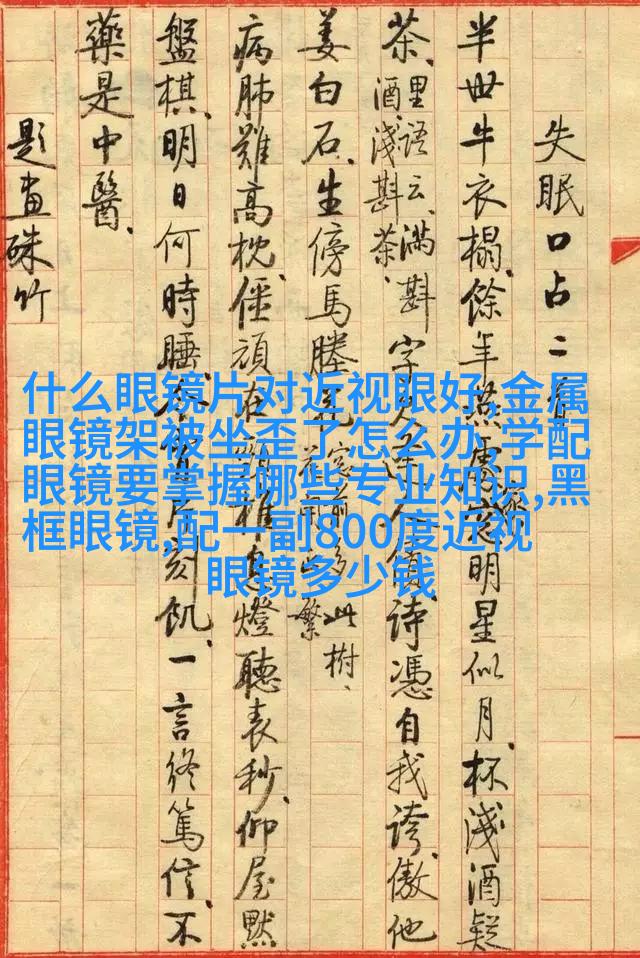 失眠口占二首
半世牛衣榻、餘年燕明星似月、杯淺酒疑
茶、里語云、滿斟酒、淺斟茶、字詩憑自我誇、傲他
姜白石、生傍馬塍花窗前多此樹、繁
病肺難高枕、僵頑頸椎燈聽表秒、仰屋默
盤棋、明日何時睡、片刻飢、一言終篤信、不
藥是中醫、
題畫硃竹
什么眼镜片对近视眼好,金属
眼镜架被坐歪了怎么办,学配
眼镜要掌握哪些专业知识,黑
框眼镜,配一副800度近视
眼镜多少钱